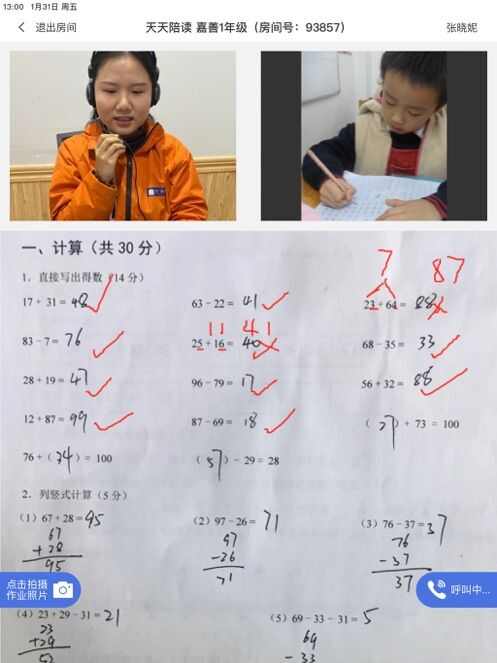 13:00 1月31日 周五
退出房间 天天陪读 嘉善1年级（房间号：93857） 张晓妮
一、计算（共 30 分）
7 87
1．直接写出得数（14 分）
17 + 31 = 48 63 − 22 = 41 23 + 64 = 88
11 41
83 − 7 = 76 25 + 16 = 40 68 − 35 = 33
28 + 19 = 47 96 − 79 = 17 56 + 32 = 88
12 + 87 = 99 87 − 69 = 18 （27）+ 73 = 100
76 +（34）= 100 （57）− 29 = 28
2．列竖式计算（5 分）
（1）67 + 28 = 95 （2）97 − 26 = 71 （3）76 − 37 = 37
67 97 76
+ 28 − 26 − 37
95 71 37
点击拍摄
作业照片
呼叫中...
（4）23 + 29 − 31 = 21 （5）69 − 33 − 31 = 5
23 69
+ 29 − 33
52